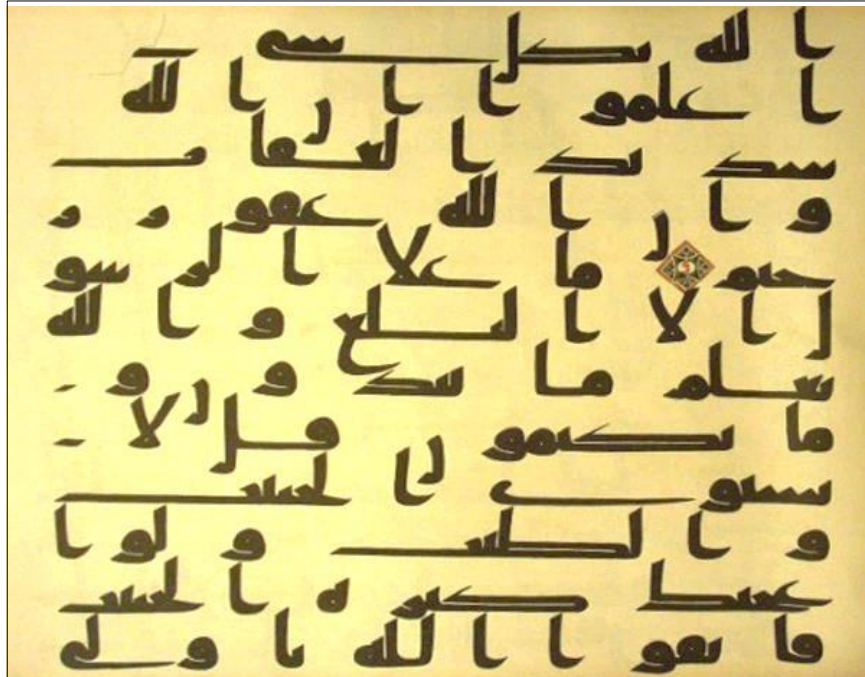 الله بكل شى
اعلموا ان الله
شديد العقاب
وان الله غفور ر
حيم ما علا الرسو
ل الا البلغ والله
يعلم ما تبدون و
ما تكتمون قل لا
يستوى الخبيث
والطيب ولو ا
عجبك كثره الخبيث
فاتقوا الله ياولى